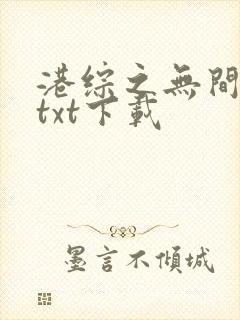 港综之無間
txt下載
墨言不傾城